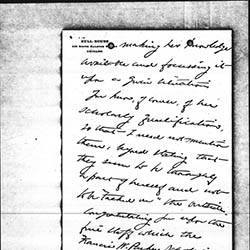 HULL-HOUSE
CHICAGO
making her knowledge
available and focussing it
upon a given situation
You know, of course, of her
scholarly qualifications,
so that I need not mention
them, beyond stating that
they seem to be thoroughly
a part of herself and not
"tacked on" the outside.
Congratulating you upon the
fine staff which the
Francis W. Parker